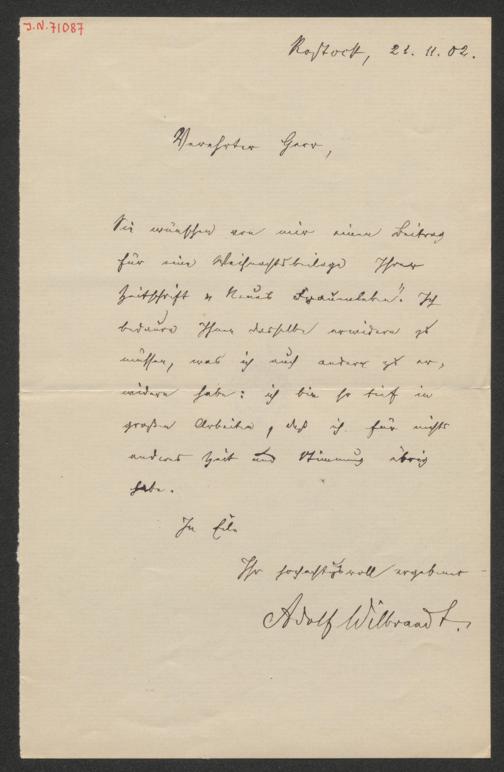 J.N. 71087
Rostock, 21. 11. 02.
Verehrter Herr,
Sie wünschen von mir einen Beitrag
für eine Weihnachtsbeilage Ihrer
Zeitschrift „Neues Frauenleben“. Ich
bedaure Ihnen dasselbe erwidern zu
müssen, was ich auch andern zu er-
widern habe: ich bin so tief in
großen Arbeiten, daß ich für nichts
anderes Zeit und Stimmung übrig
habe.
In Eile
Ihr hochachtungsvoll ergebener
Adolf Wilbrandt.